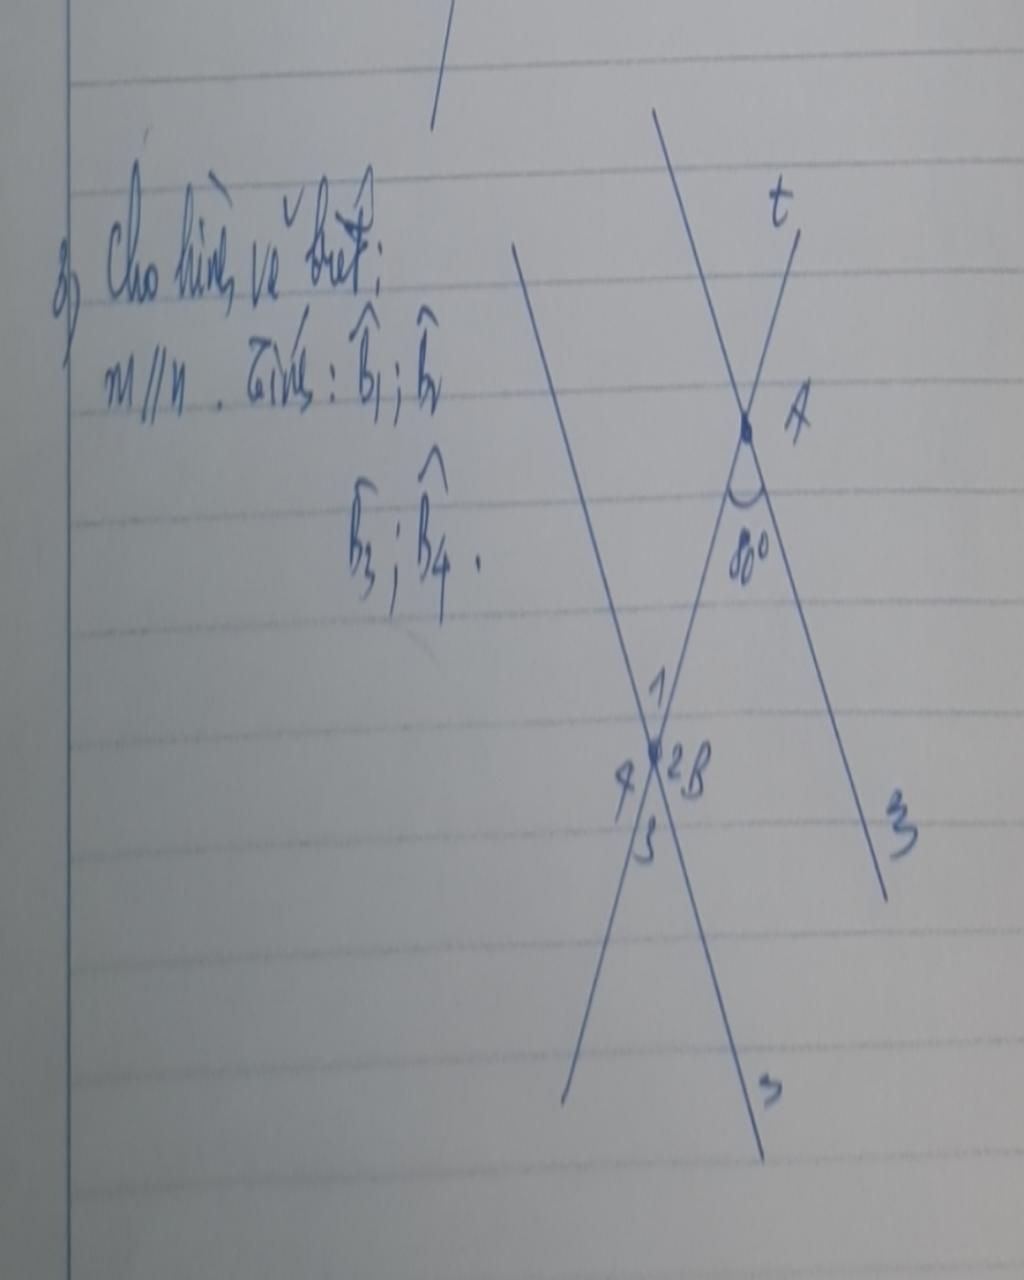 Cho hình vẽ biết:
m//n. Tính: B̂1; B̂2
B̂3; B̂4.
t
A
80°
1
4 2 B
3
m
n